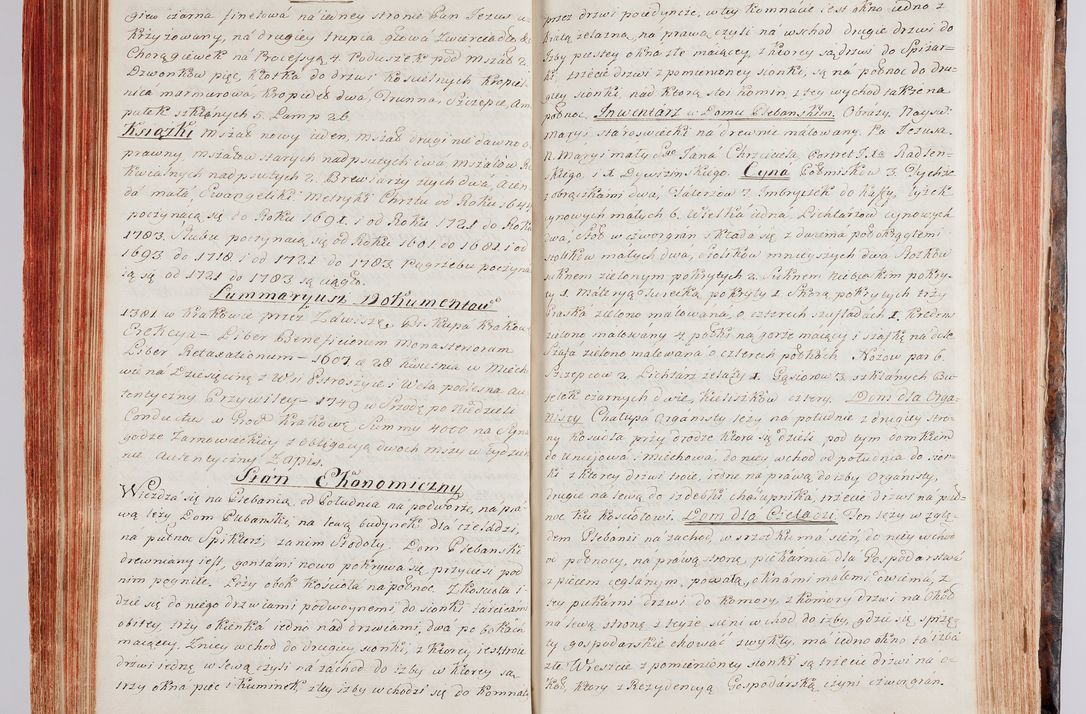 giew czarna finetową na iedney stronie Pan Jezus u-
Krzyżowany, na drugiey trupia głowa Zwierciadło
Chorągiewek na Processyą 4 Poduszek pod mszał 2.
Dzwonków pięć, Kłotka do drzwi Kościelnych Kropiel-
nica marmurowa, Kropidła dwa, Trunna, Szczepce, Am-
pułek szklanych 5. Lamp 26.
Książki mszał nowy ieden, mszał drugi nie dawno o-
prawny, mszałow starych nadpsutych dwa, mszałow
Kwialnych nadpsutych 2. Brewiarzy złych dwa, Agen-
da mała, Ewangeliki Metryki Chrztu od Roku 1644
poczynają się do Roku 1691, i od Roku 1721 do Roku
1783. Slubu poczynają się od Roku 1601 do 1681 i od
1693 do 1718 i od 1721 do 1783. Pogrzebu poczyna-
ią są od 1721 do 1783 są ciągło.
Summaryusz Dokumentow
1381 w Krakowie przez Zawiszę, Biskupa Krakow
Erekcya - Liber Beneficiorum Monasteriorum
Liber Retaxationum - 1607 a 28 Kwietnia w Miecho-
wie na Dziesięcinę z Wsi Pstroszyce i Wola podleśna au-
tentyczny Przywiley - 1749 w Srodę po Niedzieli
Conductus w Grod Krakow Summy 4000 na Syna-
godze Żarnowieckiey z obligacyą dwoch mszy w tydzień
nie Autentyczny Zapis.
Stan Ekonomiczny
Wiezdża się na Plebanią, od Południa na podworze, na pra-
wą leży Dom Plebanski, na lewą budynek dla czeladzi,
na północ Spiklerz, za nim Stodoły. Dom Plebanski
drewniany iest, gontami nowo pokrywa się, przyciesi pod
nim pogniłe. Leży obok Kościoła na północ. Z Kościoła i-
dzie się do niego drzwiami podwoynemi do sionki tarcicami
obitey, trzy okienka iedno nad drzwiami, dwa po bokach
maiącey. Zniey wchod do drugiey sionki, z ktorey iest troie
drzwi iedne w lewą czyli na zachod do izby w ktorey są
trzy okna piec i Kuminek, z tey izby wchodzi się do komnaty
przez drzwi poiedyncze, w tey komnacie iest okno iedno z
Kratą żelazną, na prawą czyli na wschod drugie drzwi do
Izby pustey okna złe maiącey, z ktorey są drzwi do Spizar-
ki, trzecie drzwi z pomienioney sionki, są na północ do dru-
giey sionki, nad ktorą stoi Komin, z tey wychod także na
północ. Inwentarz w Domu Plebanskim. Obrazy. Nayśw:
Maryi staroswiecki na drewnie malowany. Pa Jezusa.
N. Maryi mały Swo Jana Chrzciciela, Portret J. Xa Radzen-
skiego i X. Dywizinskiego. Cyna Połmiskow 3. Tychże
z obrączkami dwa, Talerzow 7. Imbryczek do kaffy, Łyżek
cynowych małych 6. Wielka iedna, Lichtarzow cynowych
dwa, stoł w czworgran składa się z dwiema pół okrągłemi
stolikow małych dwa, stolikow mnieyszych dwa Stołkow
suknem zielonym pokrytych 2. Suknem niebieskim pokry-
ty 1. Materyą Turecką pokryty 1. Skorą pokrytych trzy
Praska zielono malowana, o czterech szufladach 1. Kredens
zielono malowany 4 połki na gorze maiący i szafkę na dole
Szafa zielono malowana o czterech połkach. Nożow par 6.
Szczepcow 2. Lichtarz żelazny 1. Gąsiorow 3. szklanych Bu-
telek czarnych dwie, Kieliszkow cztery. Dom dla Orga-
nisty Chałupa Organisty leży na południe z drugiey stro-
ny Kościoła przy drodze ktora się dzieli pod tym domkiem
do Uniejowa i Miechowa, do niey wchod od południa do sion-
ki z ktorey drzwi troie, iedne na prawą do izby Organisty,
drugie na lewą do izdebki chałupnika, trzecie drzwi na pół-
noc ku kościołowi. Dom dla Czeladzi. Ten leży wzglę-
dem Plebanii na zachod, w srzodku ma sień, do niey wchod
od północy, na prawą stronę piekarnia dla Gospodarstwa
z piecem ceglanym, powałą, oknami małemi czwiema, z
tey piekarni drzwi do komory, z komory drzwi na Okół
na lewą stronę z teyże sieni wchod do izby, gdzie się sprzę-
ty gospodarskie chować zwykły, ma iedno okno ta izba
złe. Wreszcie z pomienioney sionki są trzecie drzwi na o-
koł, ktory z Rezydencyą Gospodarską czyni czworgran.